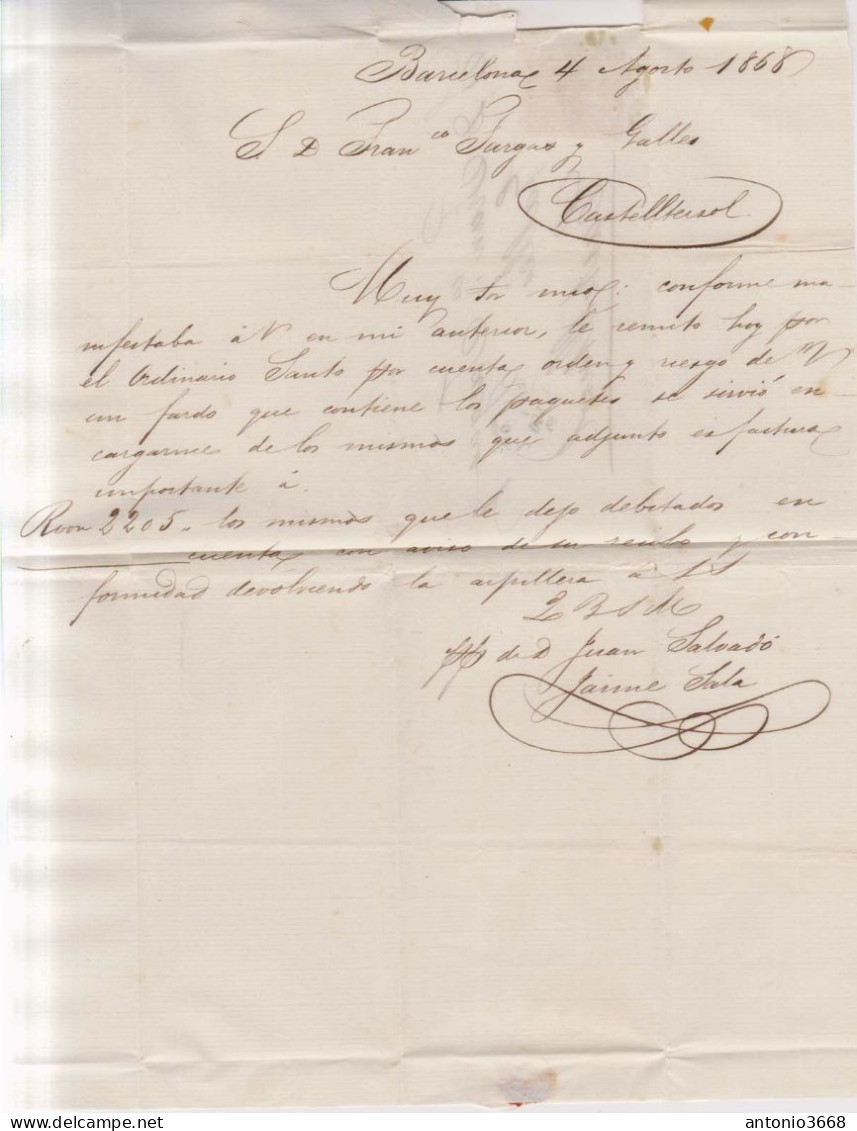 Barcelona 4 Agosto 1868
S. D Fran.co Sargas y Galles
Castelltersol
Muy Sor mio: conforme ma-
nifestaba á V en mi anterior, le remito hoy por
el Ordinario Santo por cuenta orden y riesgo de V
un fardo que contiene los paquetes se sirvió en
cargarme de los mismos que adjunto es factura
importante á.
Rvon 2205 „ los mismos que le dejo debitados en
cuenta con aviso de su recibo y con
formidad devolviendo la arpillera á S S
Q B S M
pp de D Juan Salvadó
Jaime Sala
antonio3668